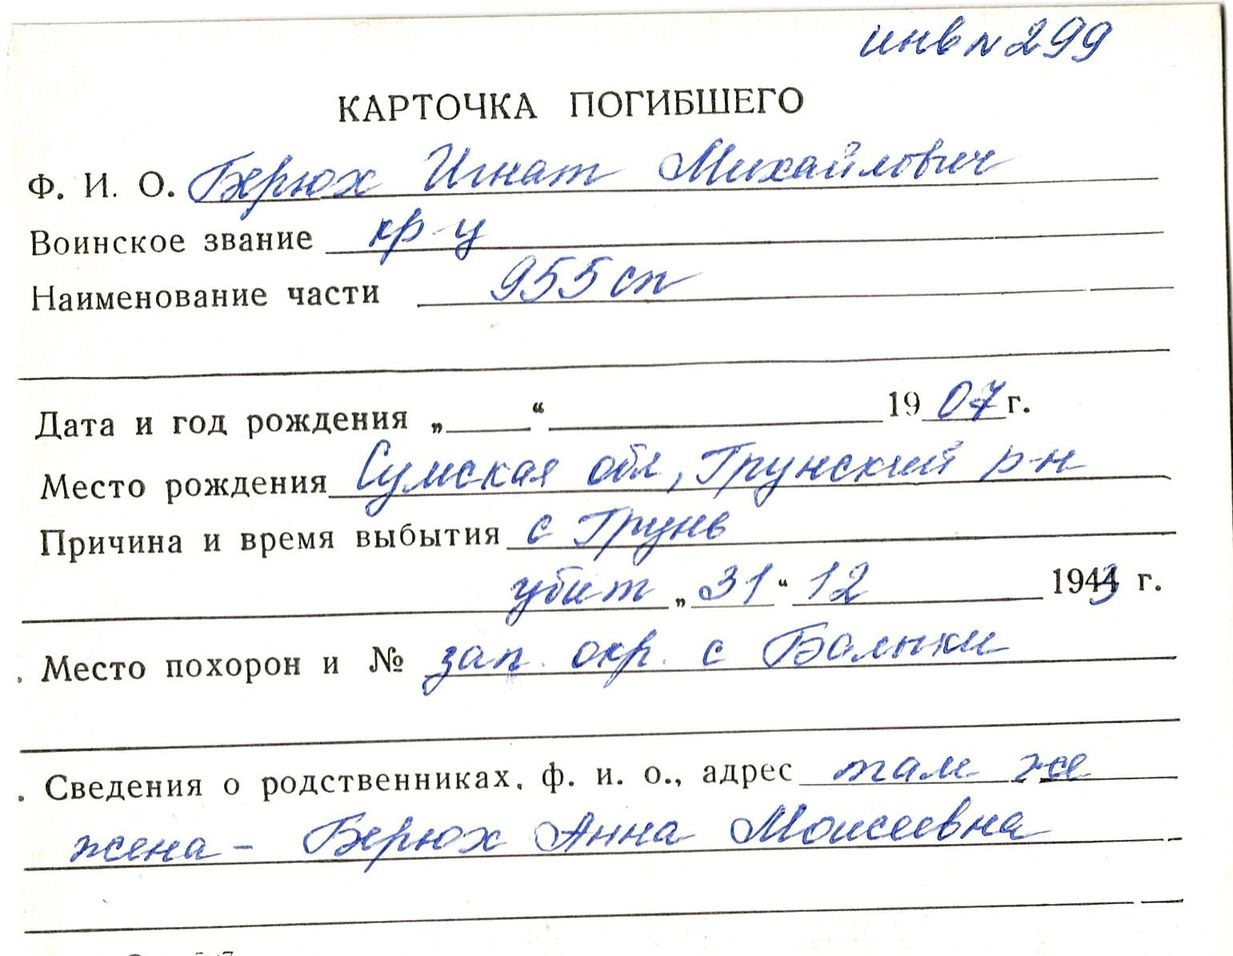 инв № 299
КАРТОЧКА ПОГИБШЕГО
Ф. И. О. Берюх Игнат Михайлович
Воинское звание кр-ц
Наименование части 955 сп
Дата и год рождения „ “ 1907 г.
Место рождения Сумская обл, Грунский р-н
Причина и время выбытия с Грунь
убит „31“ 12 1943 г.
Место похорон и № зап. окр. с Балыки
Сведения о родственниках, ф. и. о., адрес там же
жена - Берюх Анна Моисеевна